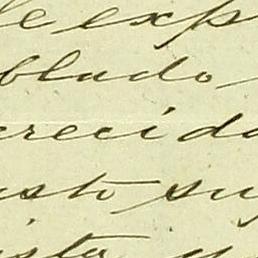 le exp
blado
crecida
usto su
ista y